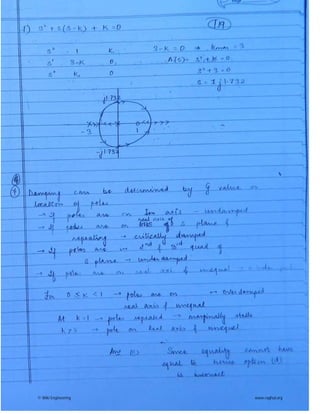 (19)
1) s² + s(3-k) + k = 0
s² 1 k, 3-k = 0 → kmar = 3
s¹ 3-k 0, A(s)= s²+k = 0
s⁰ k, 0 s²+3 = 0
s = ± j1.732
j1.732
-3 0 1
-j1.732
Damping can be determined by ξ value or
location of poles
→ if poles are on Im axis - undamped
→ if poles are on real axis of s plane &
repeating → critically damped
→ if poles are in 2nd & 3rd quad of
s plane → underdamped
→ if poles are on real axis & unequal →
for 0 ≤ k < 1 → poles are on → overdamped
real axis & unequal
At k=1 → poles repeated → marginally stable
k > 1 → pole on real axis & unequal
Ans (c) Since equality cannot have
equal to hence option (d)
is incorrect
© Wiki Engineering www.raghul.org